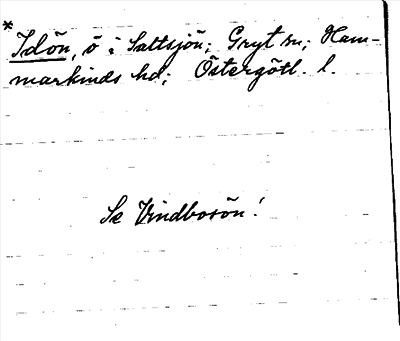 * Idön, ö i Saltsjön; Gryt sn; Ham-
markinds hd; Östergötl. l.
Se Vindbosön!